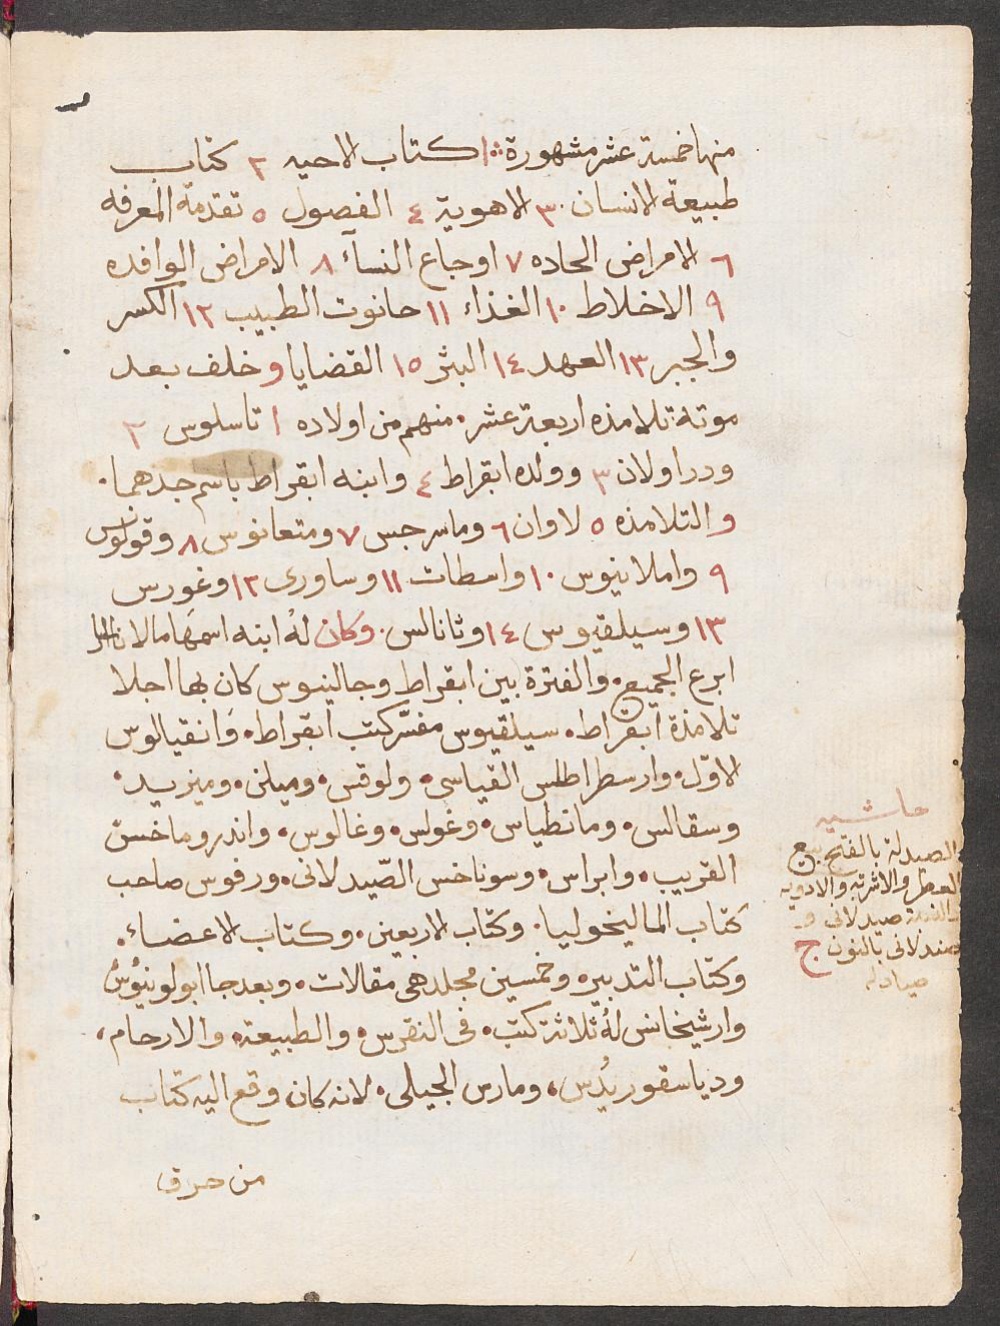 منها خمسة عشر مشهورة ∴ ١ كتاب الاجنه ٢ كتاب
طبيعة الانسان ٣ الاهوية ٤ الفصول ٥ تقدمة المعرفه
٦ الامراض الحاده ٧ اوجاع النسآء ٨ الامراض الوافده
٩ الاخلاط ١٠ الغذاء ١١ حانوت الطبيب ١٢ الكسر
والجبر ١٣ العهد ١٤ البثر ١٥ القضايا وخلف بعد
موته تلامذه اربعة عشر٠ منهم من اولاده ١ تاسلوس ٢
ودراولان ٣ وولده ابقراط ٤ وابنه ابقراط باسم جدهما٠
والتلامذه ٥ لاوان ٦ وماسرجس ٧ ومتعانوس ٨ وقولونس
٩ واملانيوس ١٠ واسطات ١١ وساورى ١٢ وغورس
١٣ وسيلقيوس ١٤ وثانالس٠ وكان لهُ ابنه اسمها مالانا
ابرع الجميع٠ والفترة بين ابقراط وجالينوس كان بها اجلا
تلامذة ابقراط٠ سيلقيوس مفسّر كتب ابقراط٠ وانقيالوس
الاوّل٠ وارسطراطلس القياسى٠ ولوقس٠ وميلن٠ وميزيد٠
وسقالس٠ ومانطياس٠ وغولس٠ وغالوس٠ واندروماخس
القريب٠ وابراس٠ وسوناخس الصّيدلانى٠ ورفوس صاحب
كتاب الماليخوليا٠ وكتاب الاربعين٠ وكتاب الاعضاء٠
وكتاب التدبير٠ وخمسين مجلد هى مقالات٠ وبعد جا ابولونيُوسُ
وارشيخانس لهُ ثلاثة كتب٠ فى النقرس٠ والطبيعة٠ والارحام،
ودياسقوريدُس، ومارس الجيلى٠ لانه كان وقع اليه كتاب
من حرق
حاشيه
الصيدلة بالفتح بيع
العطر والاشربه والادويه
صيدلانى و
صندلانى بالنون ج
صيادله